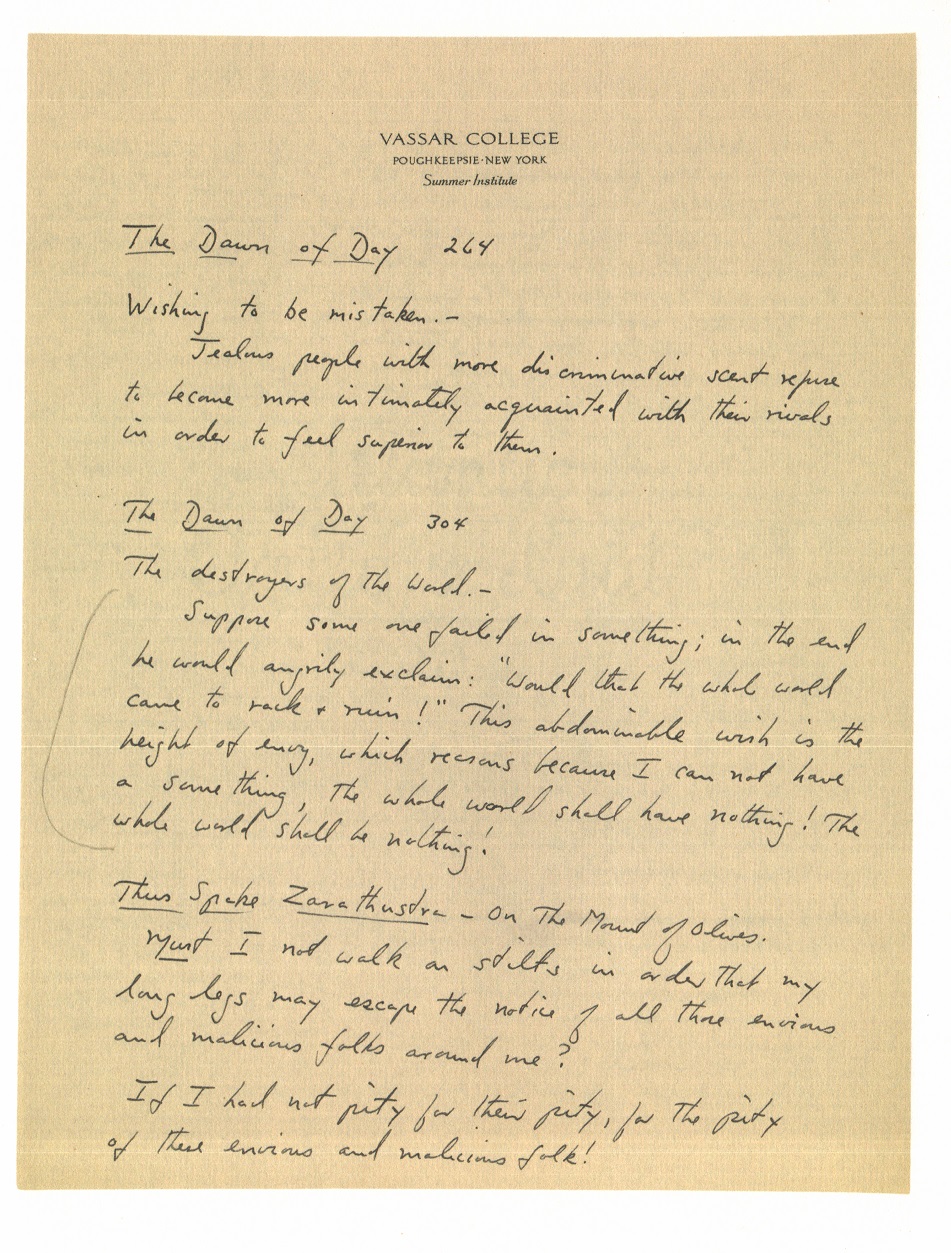 VASSAR COLLEGE
POUGHKEEPSIE·NEW YORK
Summer Institute
The Dawn of Day 264
Wishing to be mistaken.—
Jealous people with more discriminative scent refuse
to become more intimately acquainted with their rivals
in order to feel superior to them.
The Dawn of Day 304
The destroyers of the World.—
Suppose some one failed in something; in the end
he would angrily exclaim: "Would that the whole world
came to rack + ruin!" This abdominable wish is the
height of envy, which reasons because I can not have
a something, the whole world shall have nothing! The
whole world shall be nothing!
Thus Spake Zarathustra – On The Mount of Olives.
Must I not walk on stilts in order that my
long legs may escape the notice of all those envious
and malicious folks around me?
If I had not pity for their pity, for the pity
of these envious and malicious folk!